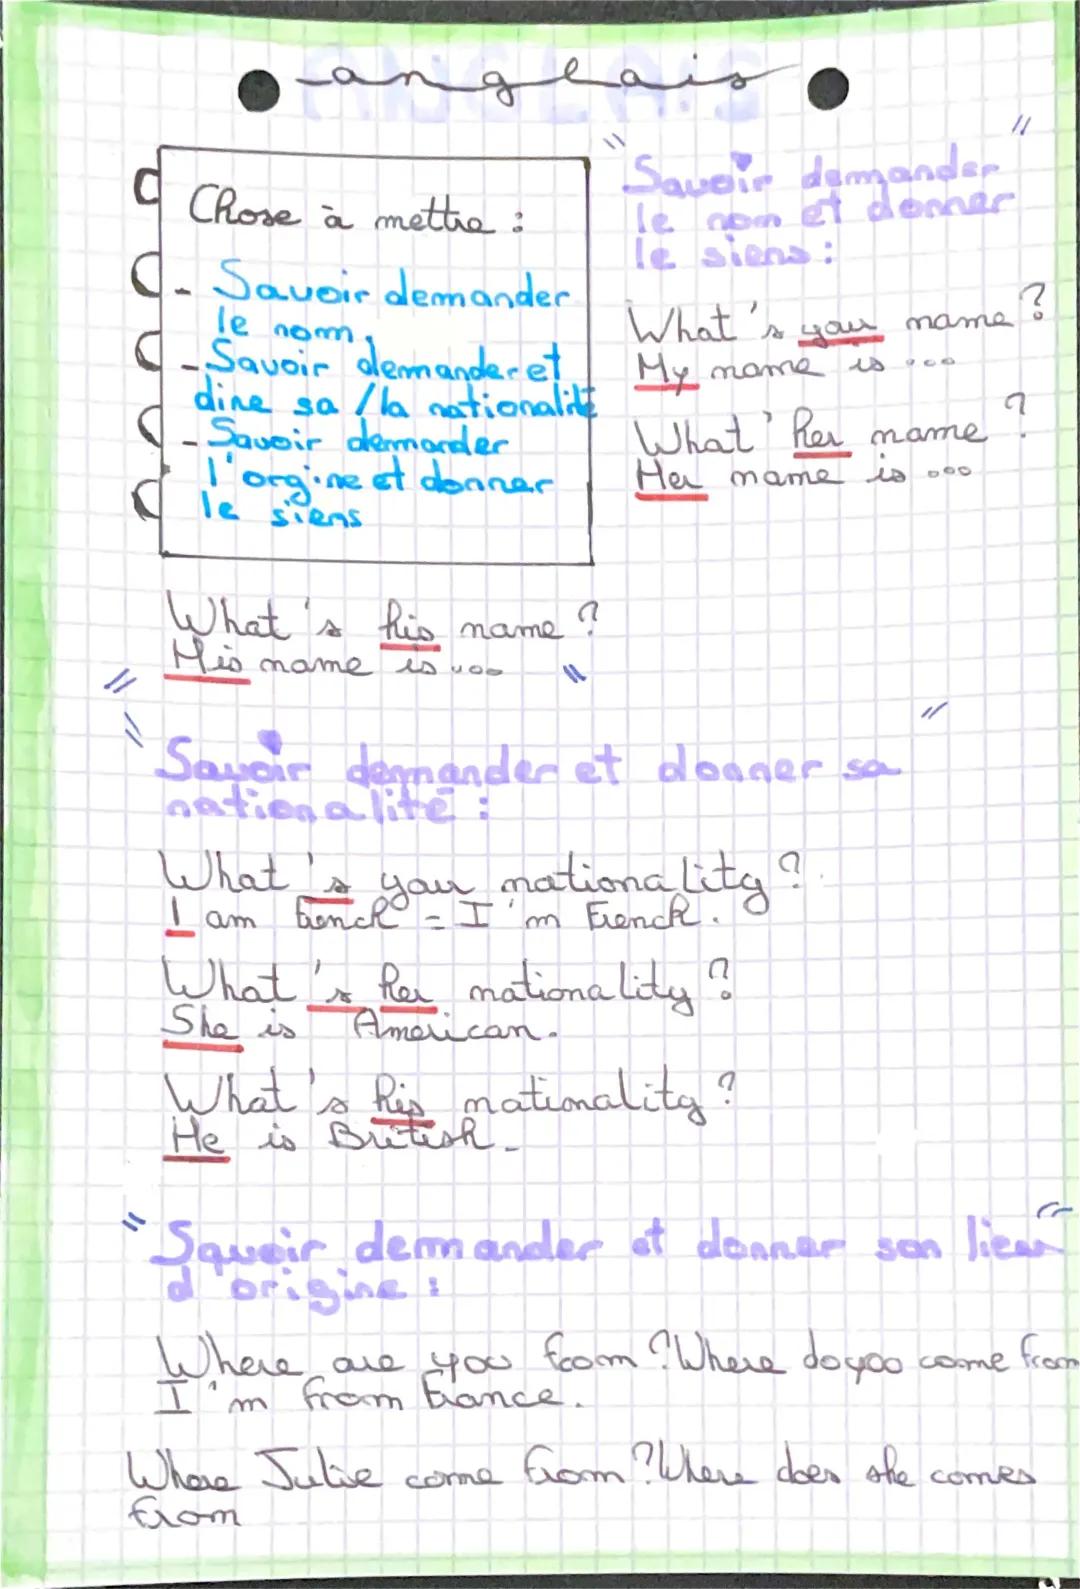 anglais
Chose à mettre :
- Savoir demander
le nom,
- Savoir demander et
dire sa / la nationalité
- Savoir demander
l'orgine et donner
le siens
"Savoir demander
le nom et donner
le siens :
What's your name ?
My name is ...
What' her name ?
Her name is ...
What's his name ?
His name is ...
"Savoir demander et donner sa
nationalité :
What's your nationality ?
I am French = I'm French.
What's her nationality ?
She is American.
What's his nationality ?
He is British.
"Savoir demander et donner son lieu
d'origine :
Where are you from ? Where do you come from
I'm from France.
Where Julie come from ? Where does she comes
from